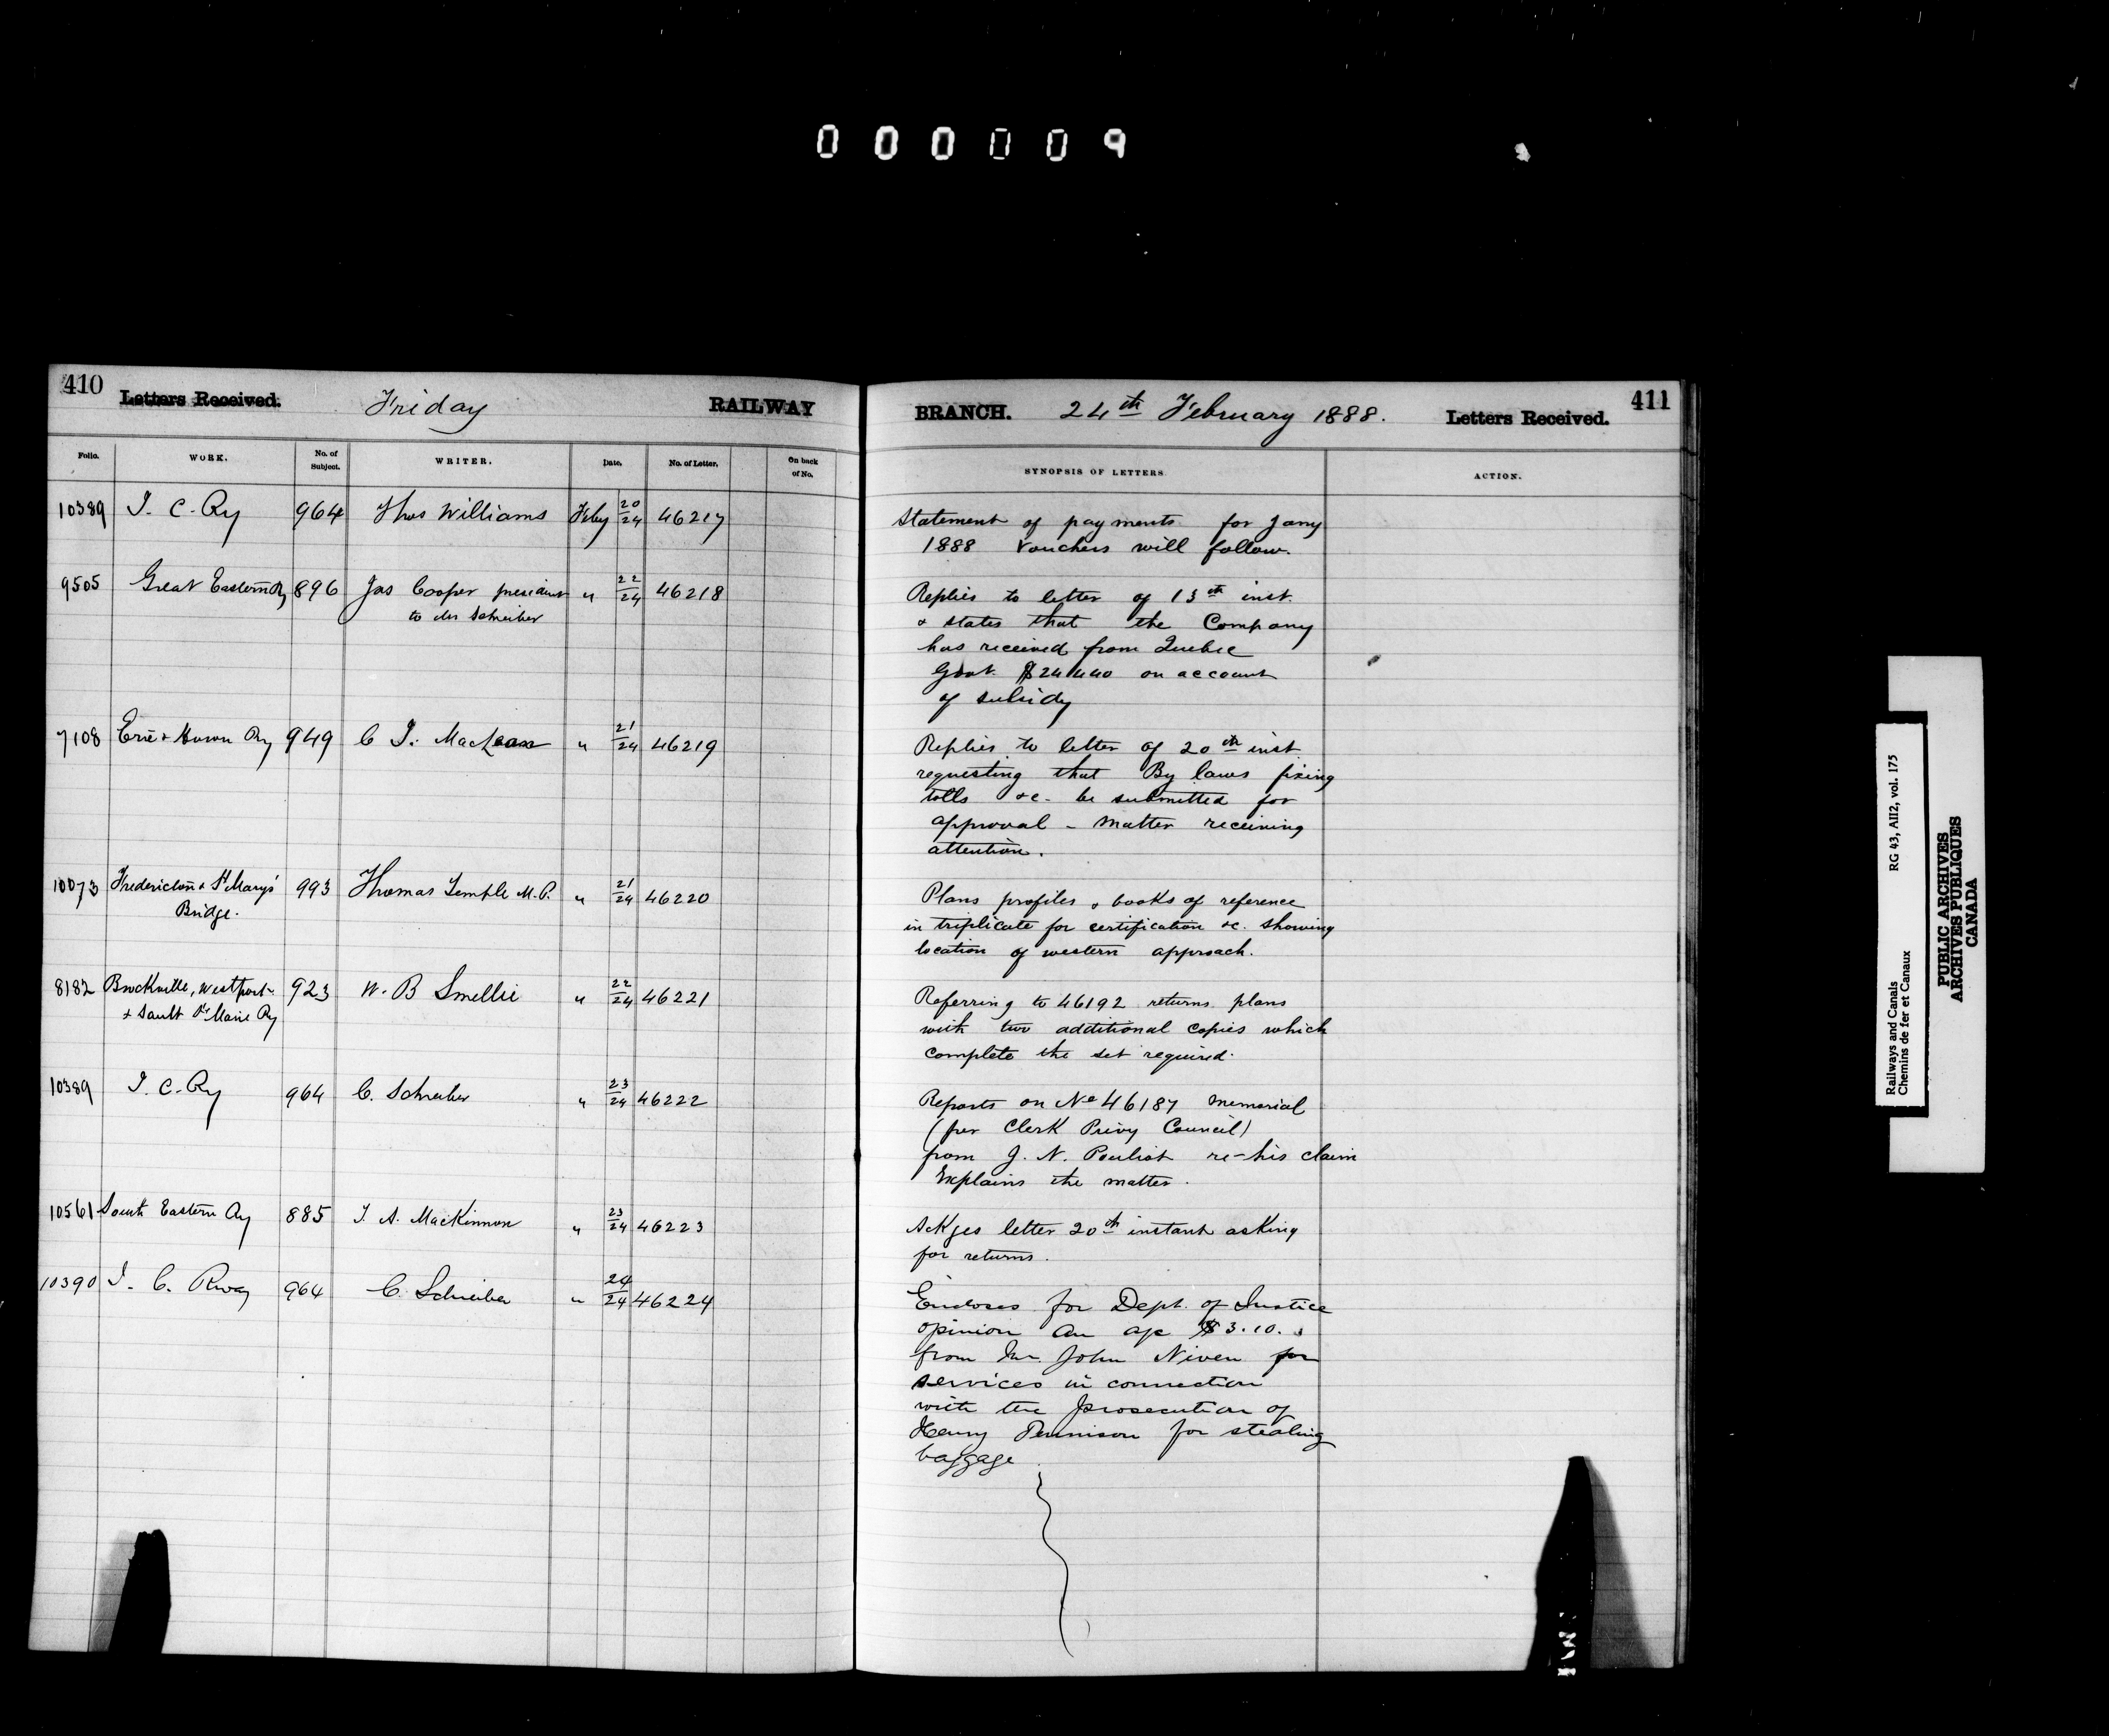 000009
410 Letters Received. Friday RAILWAY
Folio. WORK. No. of Subject. WRITER. Date. No. of Letter. On back of No.
10389 I. C. Ry 964 Thos Williams Feby 20/24 46217
9505 Great Eastern Ry 896 Jas Cooper president " 22/24 46218
to Mr Schreiber
7108 Erie & Huron Ry 949 C J. MacLean " 21/24 46219
10073 Fredericton & St Marys' 993 Thomas Temple M.P. " 21/24 46220
Bridge.
8182 Brockville, Westport 923 W. B Smellie " 22/24 46221
& Sault Ste Marie Ry
10389 I. C. Ry 964 C. Schreiber " 23/24 46222
10561 South Eastern Ry 885 T. A. MacKinnon " 23/24 46223
10390 I. C. Rway 964 C. Schreiber " 24/24 46224
BRANCH. 24th February 1888. Letters Received. 411
SYNOPSIS OF LETTERS ACTION.
Statement of payments for Jany
1888 Vouchers will follow.
Replies to letter of 13th inst.
& states that the Company
has received from Quebec
Govt. $24440 on account
of subsidy
Replies to letter of 20th inst
requesting that By laws fixing
tolls &c. be submitted for
approval - Matter receiving
attention.
Plans profiles & books of reference
in triplicate for certification &c. showing
location of western approach.
Referring to 46192 returns plans
with two additional copies which
complete the set required.
Reports on No 46187 Memorial
(per Clerk Privy Council)
from J. N. Pouliot re-his claim
Explains the matter.
Ackges letter 20th instant asking
for returns.
Encloses for Dept. of Justice
opinion an a/c $3.10.
from Mr. John Niven for
services in connection
with the prosecution of
Henry Pennison for stealing
baggage
Railways and Canals RG 43, AII2, vol. 175
Chemins de fer et Canaux
PUBLIC ARCHIVES
ARCHIVES PUBLIQUES
CANADA